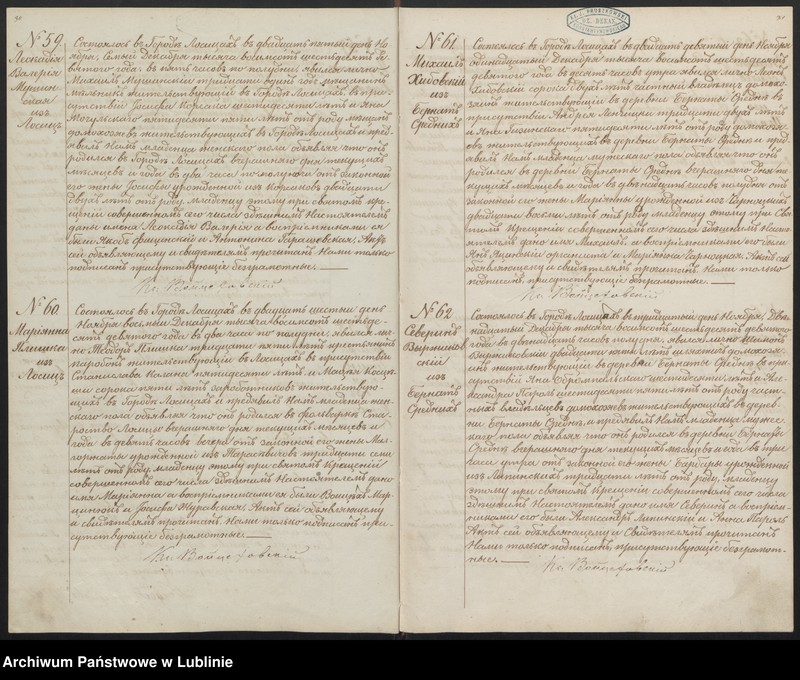 № 59.
Леокадія
Валерія
из
Лосиц
Состоялось въ Городѣ Лосицахъ въ двадцать пятый день Но-
ября, Седьмаго Декабря тысяча восемсотъ шестьдесятъ де-
вятого года, въ пять часовъ по полудни, явился лично
Михаилъ тридцати двухъ лѣтъ
жительствующій въ Городѣ Лосицахъ, въ при-
сутствіи Іосифа Корсака шестидесяти лѣтъ и Яна
пятидесяти пяти лѣтъ отъ роду мѣщанъ
домохозяевъ жительствующихъ въ Городѣ Лосицахъ и предъ-
явилъ Намъ младенца женского пола объявляя что онъ
родился въ Городѣ Лосицахъ вчерашняго дня текущихъ
мѣсяцевъ и года въ два часа пополудни отъ законной
его жены Іосефы урожденной из Корсаковъ двадцати
двухъ лѣтъ отъ роду, младенцу этому при святомъ кре-
щеніи совершенномъ сего числа здѣшнимъ Настоятелемъ
даны имена Леокадія Валерія а воспріемниками ея
были Яковъ и Антонина Актъ
сей объявляющему и свидѣтелямъ прочитанъ Нами только
подписанъ присутствующіе безграмотные. —
Кс. Войцеховскій
№ 60.
Маріянна
из
Лосиц
Состоялось въ Городѣ Лосицахъ въ двадцать шестый день
Ноября восьмый Декабря тысяча восемсотъ шестьде-
сятъ девятого года въ два часа по полудни, явился лич-
но Теодоръ тридцати пяти лѣтъ крестьянинъ
жительствующій въ Лосицахъ въ присутствіи
Станислава пятидесяти лѣтъ и
сорока пяти лѣтъ заробтниковъ жительствую-
щихъ въ Городѣ Лосицахъ и предъявилъ Намъ младенца жен-
ского пола объявляя что онъ родился въ фольваркѣ Ста-
роство Лосицы вчерашняго дня текущихъ мѣсяцевъ и
года въ девять часовъ вечера отъ законной его жены Мал-
горжаты урожденной изъ Тарасевичъ тридцати семи
лѣтъ отъ роду, младенцу этому при святомъ крещеніи
совершенномъ сего числа здѣшнимъ Настоятелемъ дано
имя Маріянна а воспріемниками ея были Войцехъ Мар-
цинюкъ и Іосефа Журавская. Актъ сей объявляющему
и свидѣтелямъ прочитанъ. Нами только подписанъ при-
сутствующіе безграмотные. —
Кс. Войцеховскій
№ 61
Михаилъ
Хидовскій
из
Бернатъ
Среднихъ
Состоялось въ Городѣ Лосицахъ въ двадцать девятый день Ноября
одинадцатый Декабря тысяча восемсотъ шестьдесятъ
девятого года въ десять часовъ утра явился лично Леонъ
Хидовскій сорока двухъ лѣтъ частный владѣлецъ домохо-
зяинъ жительствующій въ деревни Бернаты Среднѣ въ
присутствіи Андрея тридцати двухъ лѣтъ
и Яна пятидесяти лѣтъ отъ роду домохозя-
евъ жительствующихъ въ деревни Бернаты Среднѣ и предъ-
явилъ Намъ младенца мужеского пола объявляя что онъ
родился въ деревни Бернаты Среднѣ вчерашняго дня те-
кущихъ мѣсяцевъ и года въ двѣнадцать часовъ полудня отъ
законной его жены Маріянны урожденной из
двадцати восьми лѣтъ отъ роду, младенцу этому при Свя-
томъ Крещеніи совершенномъ сего числа здѣшнимъ Насто-
ятелемъ дано имя Михаилъ, а воспріемниками его были
Янъ органиста и Маріянна Чарноцкая. Актъ сей
объявляющему и свидѣтелямъ прочитанъ Нами только
подписанъ, присутствующіе безграмотные. —
Кс. Войцеховскій
№ 62
Северинъ
из
Бернатъ
Среднихъ
Состоялось въ Городѣ Лосицахъ въ тридцатый день Ноября, Двѣ-
надцатый Декабря тысяча восемсотъ шестьдесятъ девятого
года въ двѣнадцать часовъ полудня, явился лично Шимонъ
двадцати пяти лѣтъ домохозя-
инъ жительствующій въ деревни Бернаты Среднѣ въ при-
сутствіи Яна шестидесяти лѣтъ и Але-
ксандра Кероль шестидесяти пяти лѣтъ отъ роду част-
ныхъ владѣльцевъ домохозяевъ жительствующихъ въ дерев-
ни Бернаты Среднѣ, и предъявилъ Намъ младенца мужес-
кого пола объявляя что онъ родился въ деревни Бернаты
Среднѣ вчерашняго дня текущихъ мѣсяцевъ и года въ три
часа утра отъ законной его жены Барбары урожденной
изъ Липинскихъ тридцати лѣтъ отъ роду, младенцу
этому при святомъ крещеніи совершенномъ сего числа
здѣшнимъ Настоятелемъ дано имя Северинъ а воспріем-
никами его были Александръ Липинскій и Анна Кероль
Актъ сей объявляющему и Свидѣтелямъ прочитанъ
Нами только подписанъ, присутствующіе безграмот-
ные. —
Кс. Войцеховскій
Archiwum Państwowe w Lublinie